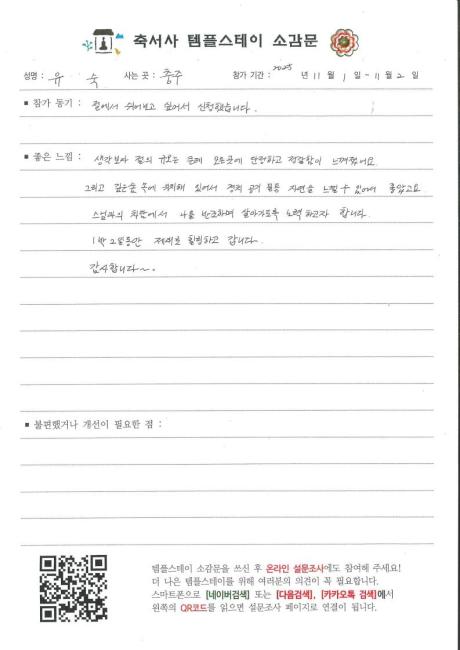 축서사 템플스테이 소감문
성명 : 유 숙 사는 곳 : 충주 참가 기간 : 2025 년 11 월 1 일 ~ 11 월 2 일
■ 참가 동기 : 절에서 쉬어보고 싶어서 신청했습니다.
■ 좋은 느낌 : 생각보다 절의 규모는 큰데 모든곳에 단정하고 정갈함이 느껴졌어요.
그리고 깊은산 속에 위치해 있어서 경치 공기 물등 자연을 느낄 수 있어서 좋았고요
스님과의 차담에서 나를 반조하며 살아가도록 노력하고자 합니다.
1박 2일동안 제대로 힐링하고 갑니다.
감사합니다~.
■ 불편했거나 개선이 필요한 점 :
템플스테이 소감문을 쓰신 후 온라인 설문조사에도 참여해 주세요!
더 나은 템플스테이를 위해 여러분의 의견이 꼭 필요합니다.
스마트폰으로 [네이버검색] 또는 [다음검색], [카카오톡 검색]에서
왼쪽의 QR코드를 읽으면 설문조사 페이지로 연결이 됩니다.